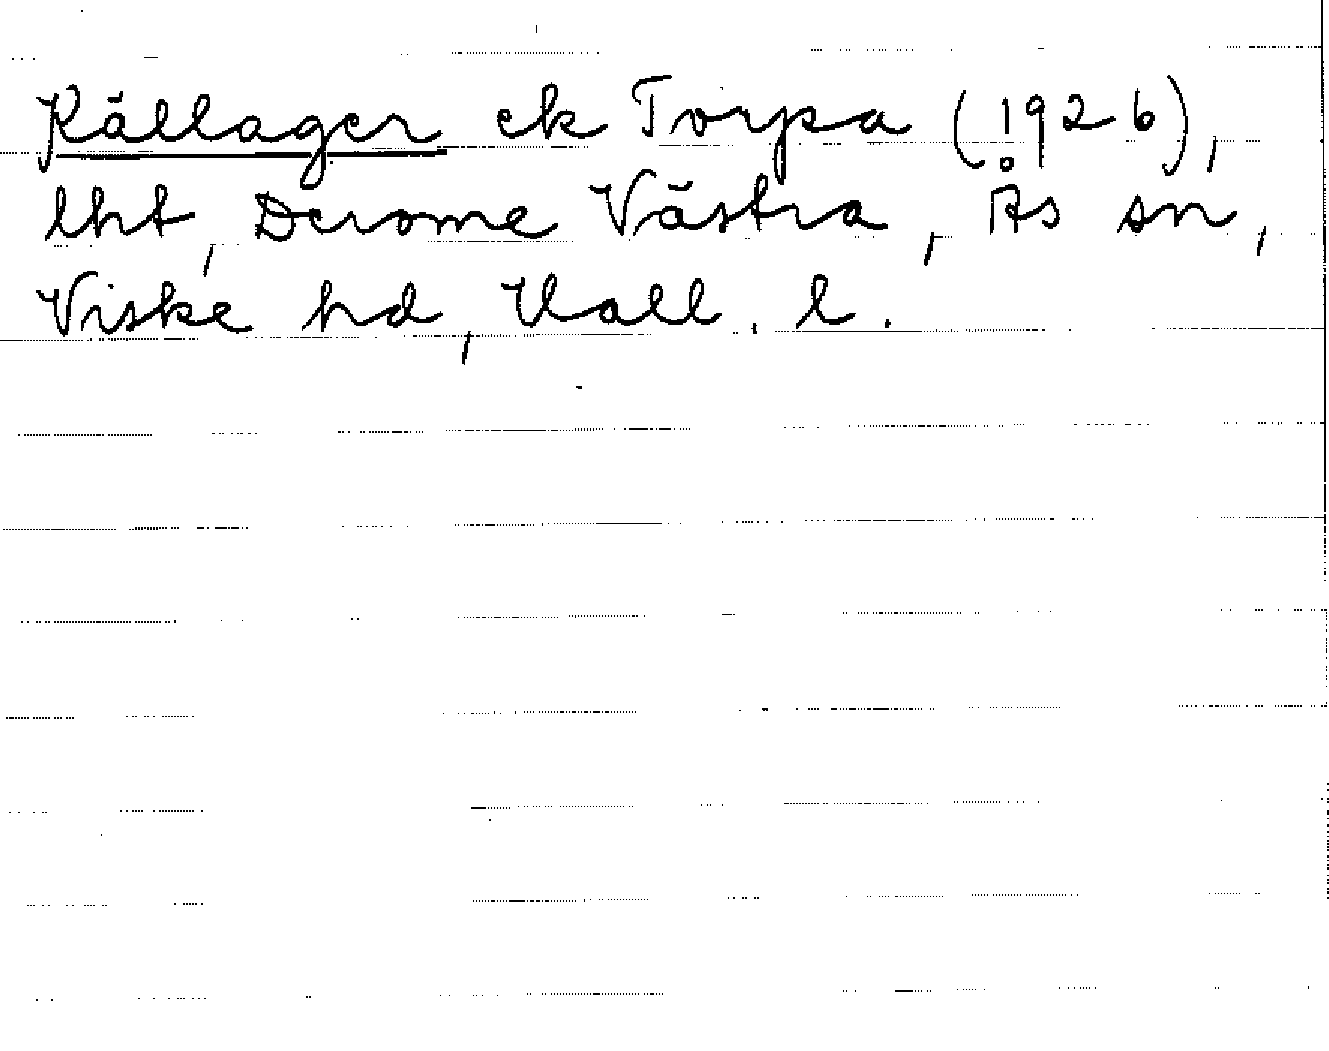 Källager ek Torpa (1926),
lht, Derome Västra, Ås sn,
Viske hd, Hall. l.